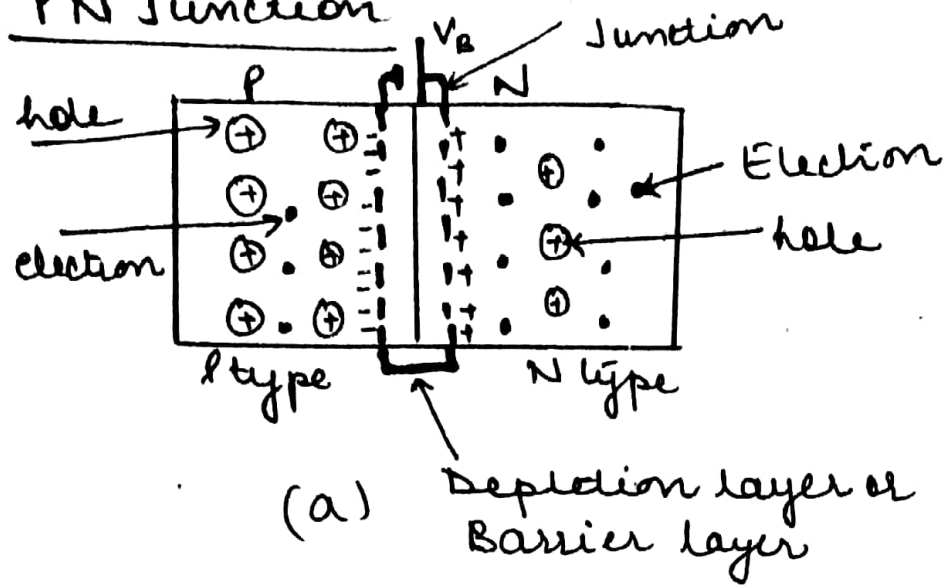 PN Junction
VB
Junction
P
N
hole
Election
election
hole
P type
N type
(a)
Depletion layer or
Barrier layer